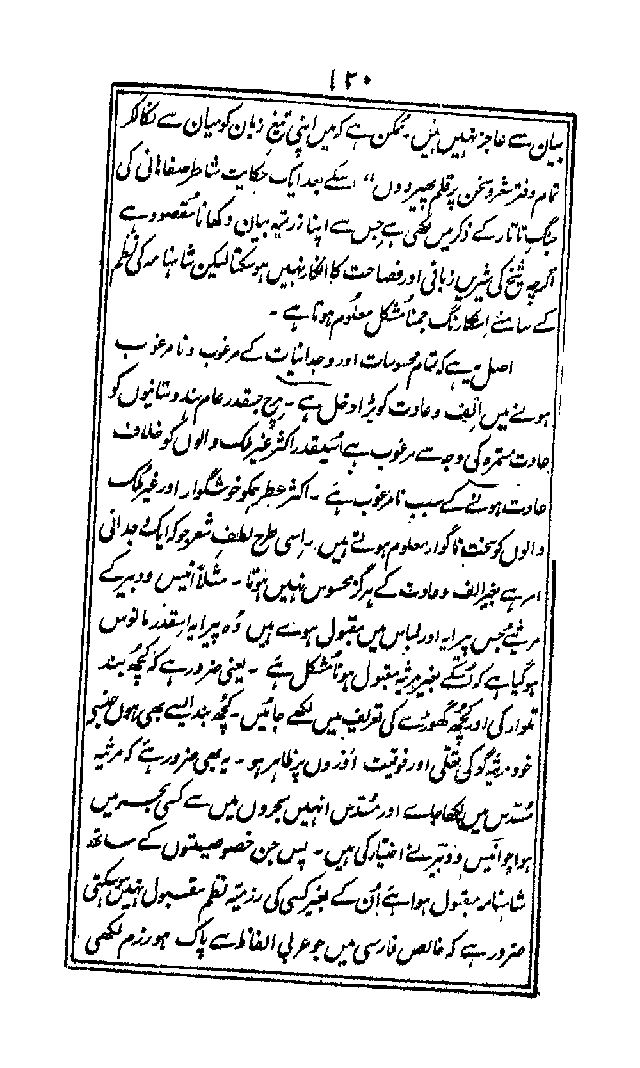 ۱۲۰
بیان سے عاجز نہیں ہیں۔ ممکن ہے کہ میں اپنی تیغِ زبان کو میان سے نکالکر
تمام دفتر شعر و سخن پر قلم پھیر دوں" اسکے بعد ایک حکایت شاطر صفاہانی کی
جنگِ تاتار کے ذکر میں لکھی ہے جس سے اپنا رزمیہ بیان دکھانا مقصود ہے
اگرچہ شیخ کی شیریں زبانی اور فصاحت کا انکار نہیں ہو سکتا لیکن شاہنامہ کی نظم
کے سامنے اسکا رنگ جمنا مُشکل معلوم ہوتا ہے۔
اصل یہ ہے کہ تمام محسوسات اور وجدانیات کے مرغوب و نامرغوب
ہونے میں الف و عادت کو بڑا دخل ہے۔ مرچ جسقدر عام ہندوستانیوں کو
عادت مستمرہ کی وجہ سے مرغوب ہے اُسیقدر اکثر غیر ملک والوں کو خلاف
عادت ہونے کے سبب نامرغوب ہے۔ اکثر عطر ہمکو خوشگوار اور غیر ملک
والوں کو سخت ناگوار معلوم ہوتے ہیں۔ اِسی طرح لطفِ شعر جو کہ ایک وجدانی
امر ہے بغیر الف و عادت کے ہرگز محسوس نہیں ہوتا۔ مثلاً انیس و دبیر کے
مرثیے جس پیرایہ اور لباس میں مقبول ہوے ہیں وُہ پیرایہ اسقدر مانوس
ہو گیا ہے کہ اُسکے بغیر مرثیہ مقبول ہونا مُشکل ہے۔ یعنی ضرور ہے کہ کچھ بند
تلوار کی اور کچھ گھوڑے کی تعریف میں لکھے جائیں۔ کچھ بند ایسے بھی ہوں جنمیں
خود مرثیہ گو کی تعلّی اور فوقیت اَوروں پر ظاہر ہو۔ یہ بھی ضرور ہے کہ مرثیہ
مُسدّس میں لکھا جاے اور مُسدّس انہیں بحروں میں سے کسی بحر میں
ہو جو انیس و دبیر نے اختیار کی ہیں۔ پس جن خصوصیتوں کے ساتھ
شاہنامہ مقبول ہوا ہے اُن کے بغیر کسی کی رزمیہ نظم مقبول نہیں ہو سکتی
ضرور ہے کہ خالص فارسی میں جو عربی الفاظ سے پاک ہو رزم لکھی